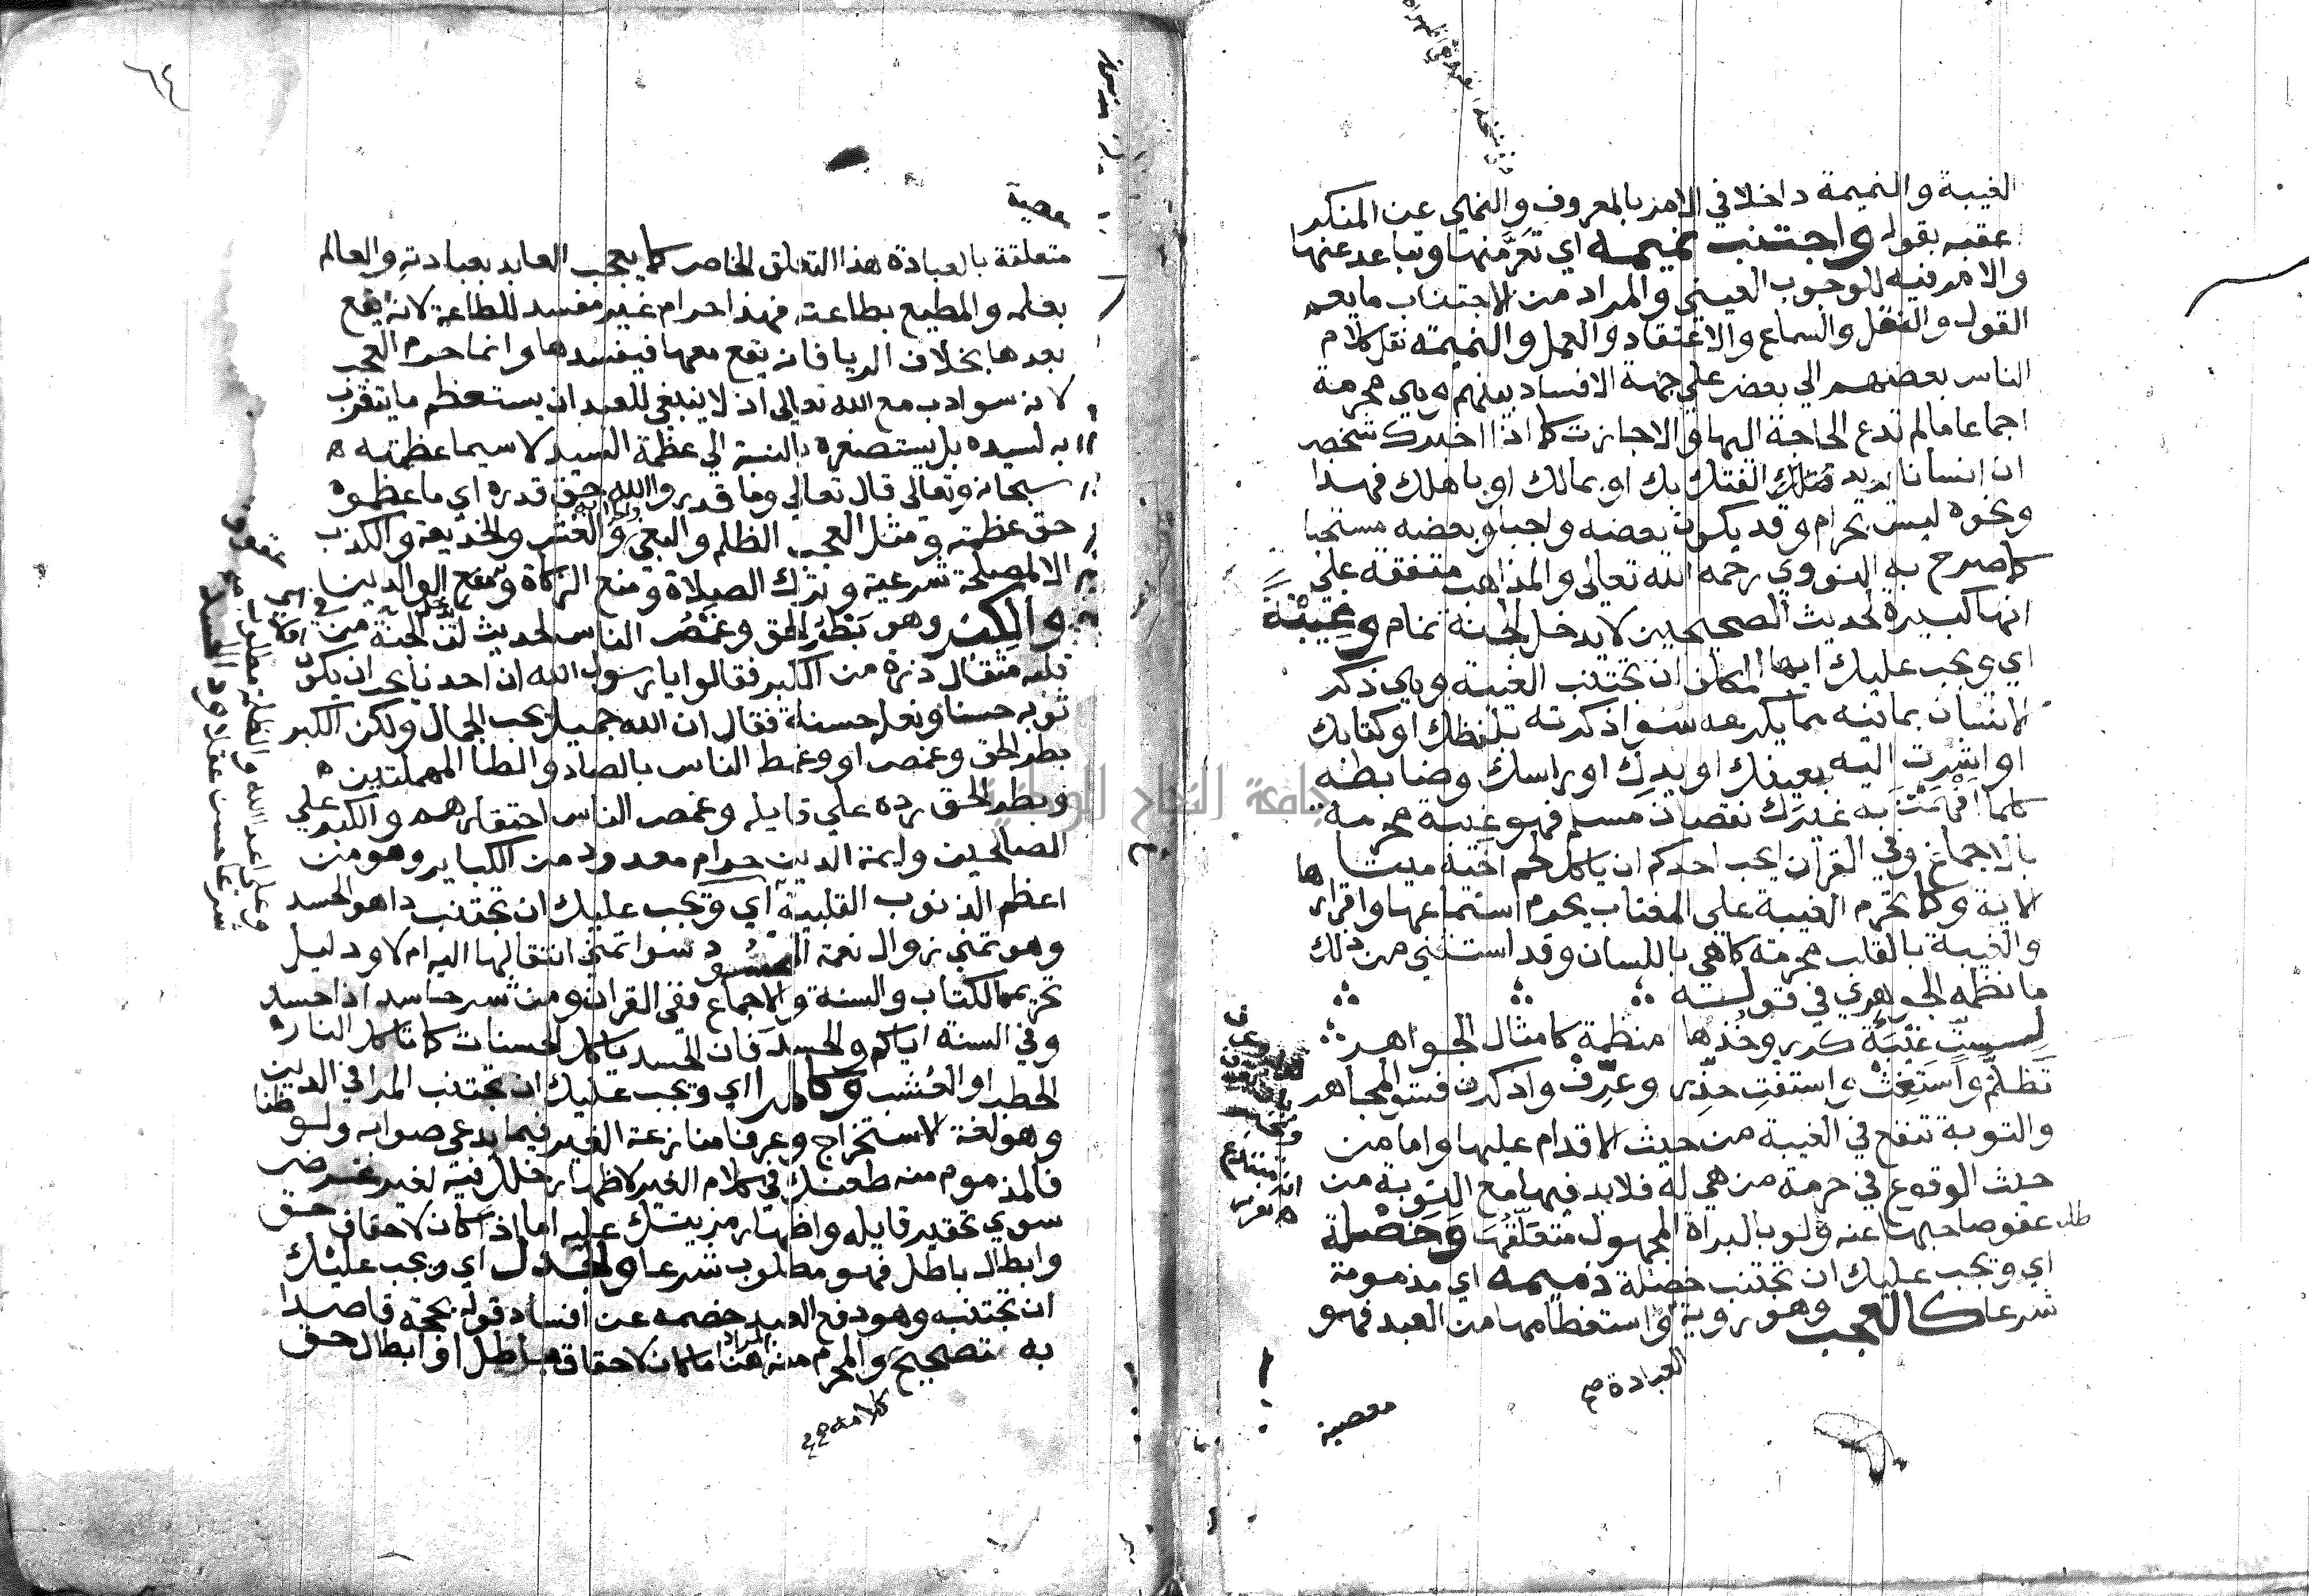 الغيبة والنميمة داخلا في الامر بالمعروف والنهي عن المنكر
عقبه بقوله واجتنب نميمه اي تعر منها وتباعد عنها
والامر فيه للوجوب العيني والمراد من الاجتناب ما يعم
القول والنقل والسماع والاعتقاد والعمل والنميمة نقل كلام
الناس بعضهم الي بعض علي جهة الافساد بينهم وهي محرمة
اجماعا ما لم تدع الحاجة اليها والا جازت كما اذا اخبرك شخص
ان انسانا يريد الفتك بك او بمالك او باهلك فهذا
ونحوه ليس بحرام وقد يكون بعضه واجبا وبعضه مستحبا
كما صرح به النووي رحمه الله تعالى والمذاهب متفقة علي
انها كبيرة لحديث الصحيحين لا يدخل الجنة نمام وغيبة
اي ويجب عليك ايها المكلف ان تجتنب الغيبة وهي ذكر
الانسان بما فيه مما يكرهه سوا ذكرته بلفظك او كتابك
او اشرت اليه بعينك او يدك او راسك وضابطه
كلما افهمت به غيرك نقصان مسلم فهو غيبة محرمة
بالاجماع وفي القران ايحب احدكم ان ياكل لحم اخيه ميتا
الاية وكما تحرم الغيبة علي المغتاب يحرم استماعها واقرارها
والغيبة بالقلب محرمة كما هي باللسان وقد استثني من ذلك
ما نظمه الجوهري في قوله
لست غيبة كرر وخذها منظمة كامثال الجواهر
تظلم واستغث واستفت حذر وعرف واذكرن فسق المجاهر
والتوبة تنفع في الغيبة من حيث الاقدام عليها واما من
حيث الوقوع في حرمة من هي له فلا بد فيها مع التوبة من
طلب عفو صاحبها عنه ولو بالبراة المجهول متعلقها وخصلة
اي ويجب عليك ان تجتنب خصلة ذميمه اي مذمومة
شرعا كالعجب وهو روية واستعظامها من العبد فهو
العبادة صح
معصية
٦٤
معصية
متعلقة بالعبادة هذا التعلق الخاص كما يعجب العابد بعبادته والعالم
بعلمه والمطيع بطاعته فهذا حرام غير مفسد للطاعة لانه يقع
بعدها بخلاف الريا فانه يقع معها فيفسدها وانما حرم العجب
لانه سو ادب مع الله تعالى اذ لا ينبغي للعبد ان يستعظم ما يتقرب
به لسيده بل يستصغره بالنسبة الي عظمة السيد لا سيما عظمته
سبحانه وتعالى قال تعالي وما قدروا الله حق قدره اي ما عظموه
حق عظمته ومثل العجب الظلم والبغي والغش والخديعة والكذب
الا لمصلحة شرعية وترك الصلاة ومنع الزكاة الوالدين
والكبر وهو بطر الحق وغمص الناس لحديث لن الجنة من في
قلبه مثقال ذرة من الكبر فقالوا يا رسول الله ان احدنا يحب ان يكون
ثوبه حسنا ونعله حسنة فقال ان الله جميل يحب الجمال ولكن الكبر
بطر الحق وغمص او وغمط الناس بالصاد والطا المهملتين
وبطر الحق رده علي قايله وغمص الناس احتقارهم والكبر علي
الصالحين وايمة الدين حرام معدود من الكباير وهو من
اعظم الذنوب القلبية اي ويجب عليك ان تجتنب دا هو الحسد
وهو تمني زوال نعمة سوا تمني انتقالها اليه ام لا ودليل
تحريمه الكتاب والسنة والاجماع ففي القران ومن شر حاسد اذا حسد
وفي السنة اياكم والحسد فان الحسد ياكل الحسنات كما تاكل النار
الحطب او العشب وكالمرا اي ويجب عليك ان تجتنب المرا في الدين
وهو لغة الاستخراج وعرفا منازعة الغير فيما يدعي صوابه ولو ظنا
فالمذموم منه طعنك في كلام الغير لاظهار خلل فيه لغير غرض
سوي تحقير قايله واظهار مزيتك عليه اما اذا كان لاحقاق حق
وابطال باطل فهو مطلوب شرعا والجدل اي ويجب عليك
ان تجتنبه وهو دفع العبد خصمه عن افساد قوله بحجة قاصدا
به تصحيح والمحرم منه ما كان لاحقاق باطل او ابطال حق
كلامه صح